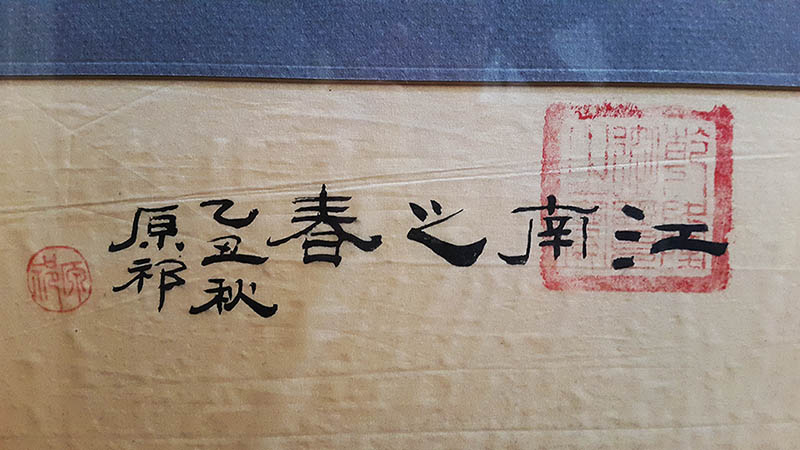 江南之春
乙丑秋
原祁